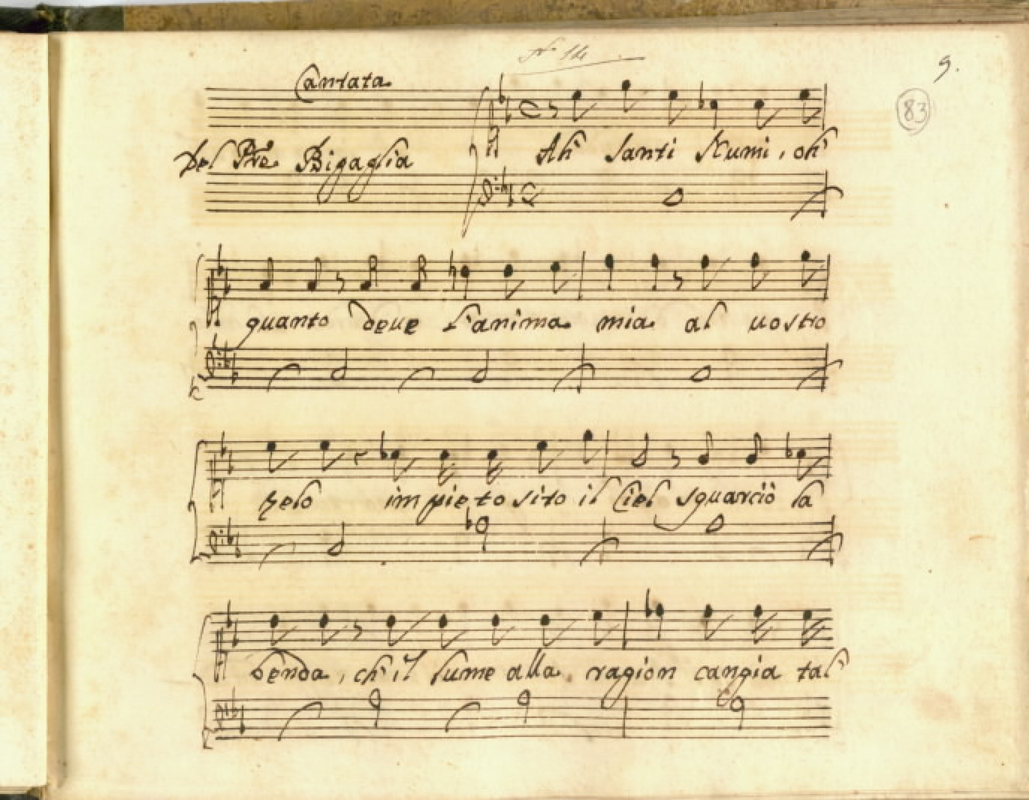 N.º 14
9.
83
Cantata
Del Pre. Bigaglia
Ah Santi Numi, oh
quanto deve l'anima mia al vostro
zelo impietosito il Ciel squarciò la
benda, ch'il lume alla ragion cangia tal